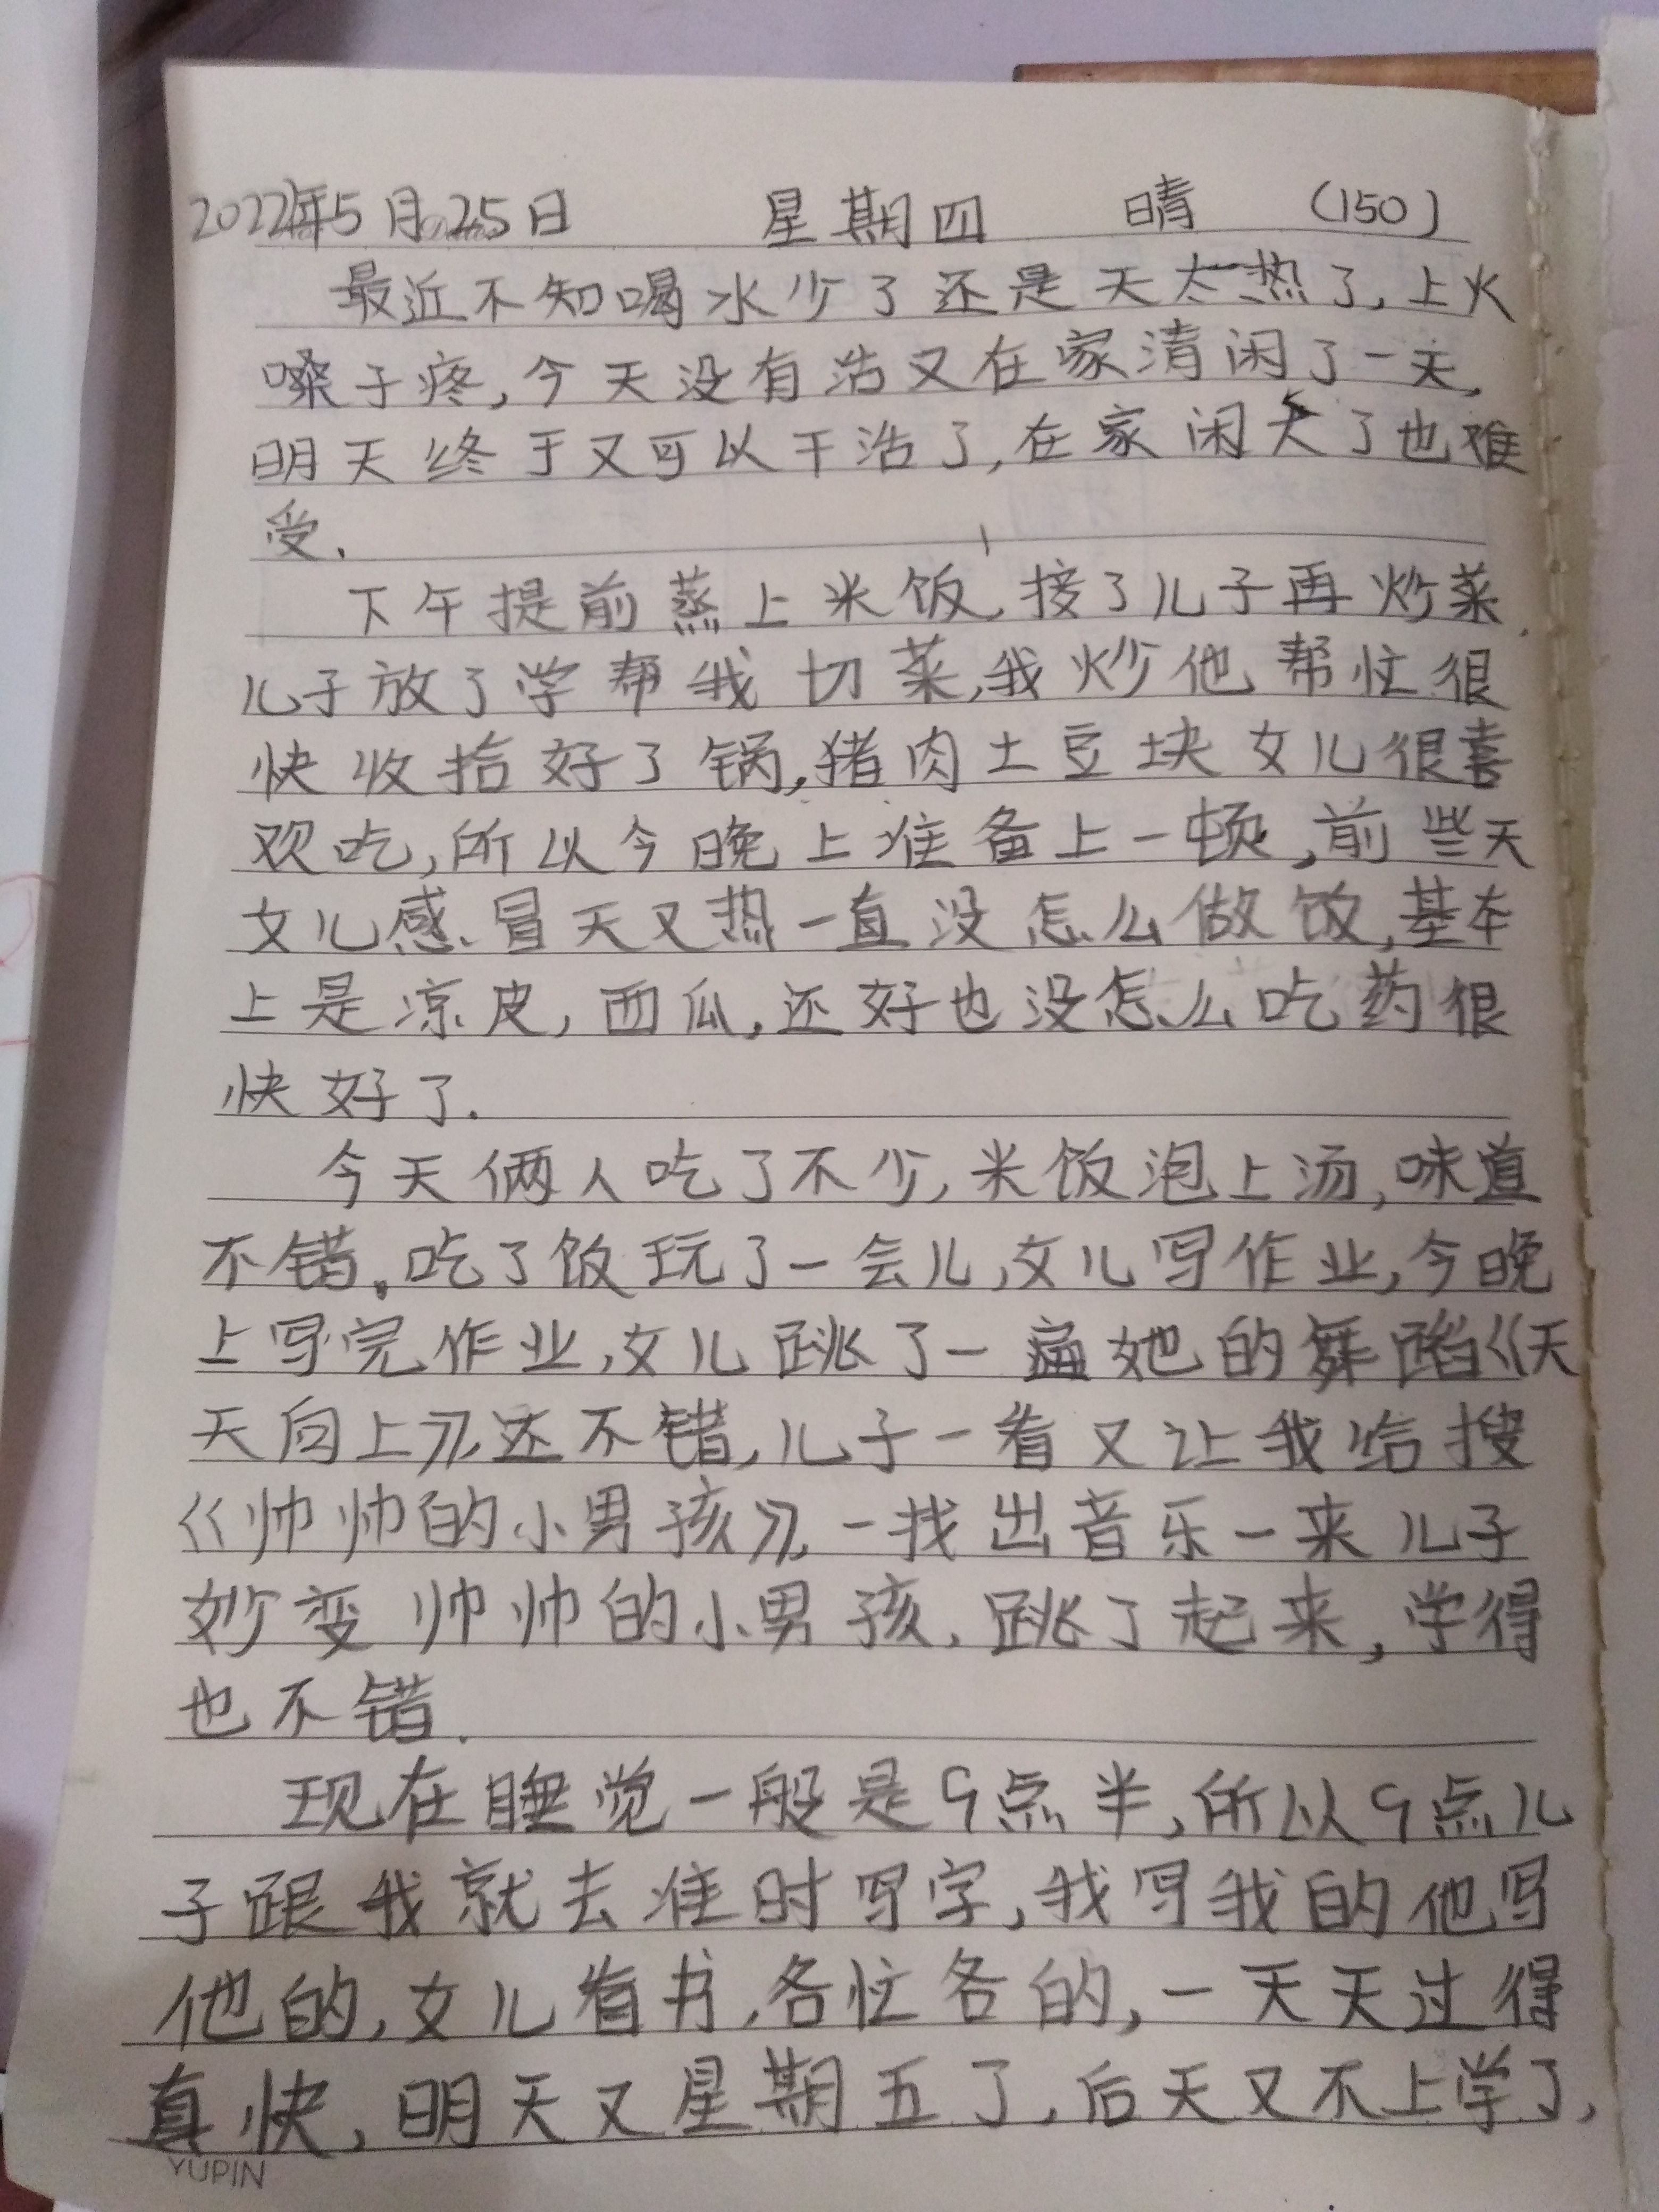 2022年5月25日 星期四 晴 (150)
最近不知喝水少了还是天太热了,上火
嗓子疼,今天没有活又在家清闲了一天,
明天终于又可以干活了,在家闲天了也难
受.
下午提前蒸上米饭,接了儿子再炒菜.
儿子放了学帮我切菜,我炒他帮忙很
快收拾好了锅,猪肉土豆块女儿很喜
欢吃,所以今晚上准备上一顿,前些天
女儿感冒天又热一直没怎么做饭,基本
上是凉皮,西瓜,还好也没怎么吃药很
快好了.
今天俩人吃了不少,米饭泡上汤,味道
不错。吃了饭玩了一会儿,女儿写作业,今晚
上写完作业,女儿跳了一遍她的舞蹈《天
天向上》,还不错,儿子一看又让我给搜
《帅帅的小男孩》,一找出音乐一来儿子
妙变帅帅的小男孩.跳了起来,学得
也不错.
现在睡觉一般是9点半,所以9点儿
子跟我就去准时写字,我写我的他写
他的,女儿看书,各忙各的,一天天过得
真快,明天又星期五了,后天又不上学了,
YUPIN